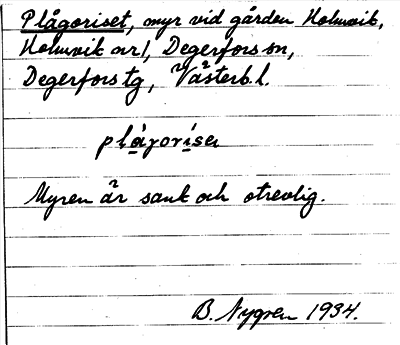 Plågoriset, myr vid gården Holmvik,
Holmvik nr 1, Degerfors sn,
Degerfors tg, Västerb. l.
plågorise
Myren är sank och otrevlig.
B. Nygren 1934.